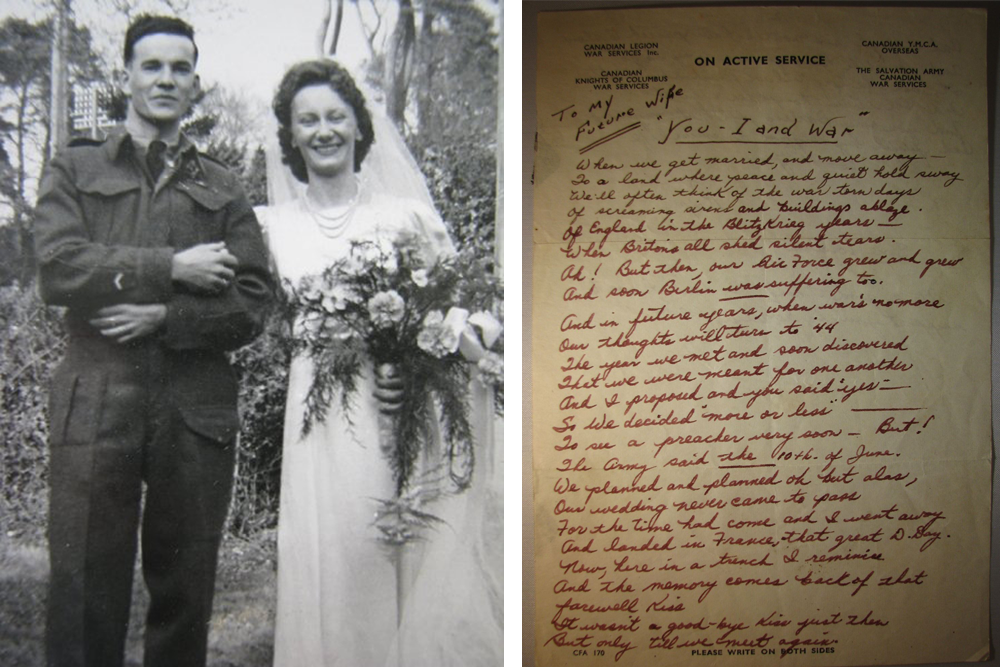 CANADIAN LEGION
WAR SERVICES Inc.
CANADIAN
KNIGHTS OF COLUMBUS
WAR SERVICES
ON ACTIVE SERVICE
CANADIAN Y.M.C.A.
OVERSEAS
THE SALVATION ARMY
CANADIAN
WAR SERVICES
To My
Future Wife
"You - I and War"
When we get married, and move away —
To a land where peace and quiet hold sway
We'll often think of the war torn days
Of screaming sirens and buildings ablaze.
Of England in the Blitzkrieg years —
When Britons all shed silent tears.
Ah! But then, our Air Force grew and grew
And soon Berlin was suffering too.
And in future years, when war's no more
Our thoughts will turn to '44
The year we met and soon discovered
That we were meant for one another
And I proposed and you said "yes" —
So we decided "more or less" —
To see a preacher very soon — But!
The Army said the 10th. of June.
We planned and planned oh but alas,
Our wedding never came to pass
For the time had come and I went away
And landed in France, that great D. Day.
Now, here in a trench I reminise
And the memory comes back of that
farewell Kiss
It wasn't a good-bye Kiss just then
But only till we meet again.
CFA 170
PLEASE WRITE ON BOTH SIDES